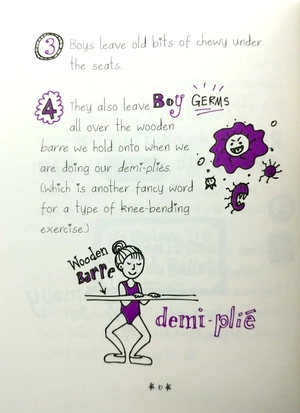 3 Boys leave old bits of chewy under
the seats.
4 They also leave Boy GERMS
all over the wooden
barre we hold onto when we
are doing our demi-pliés.
(Which is another fancy word
for a type of knee-bending
exercise.)
Wooden
Barre
demi-plié